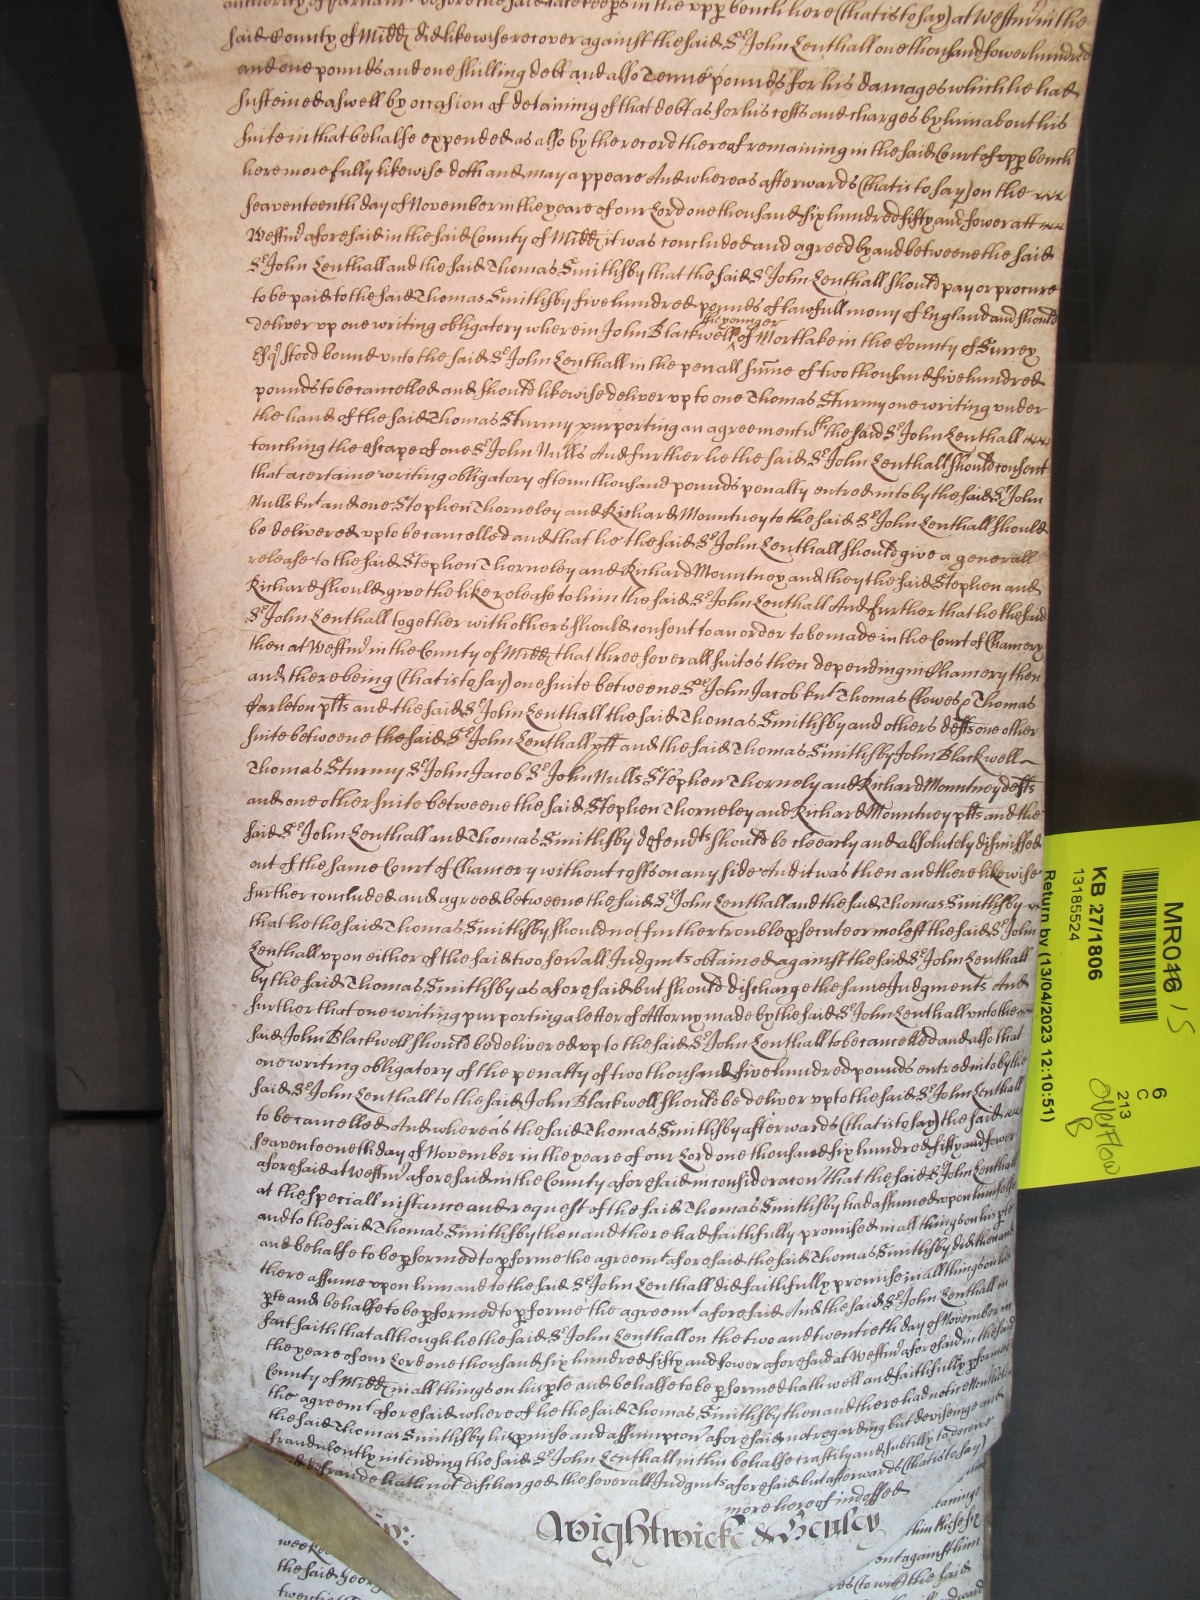 said County of Midd did likewise recover against the said Sr John Lenthall one thousand fower hundred
and one pounds and one shilling debt and also Tenne pounds for his damages which he had
susteined aswell by occasion of detaining of that debt as for his costs and charges by him about his
suite in that behalfe expended as also by the record thereof remaining in the said Court of upp bench
here more fully likewise doth and may appeare And whereas afterwards (that is to say) on the
seaventeenth day of November in the yeare of our Lord one thousand six hundred fifty and fower att
Westmr aforesaid in the said County of Midd it was concluded and agreed by and betweene the said
Sr John Lenthall and the said Thomas Smithsby that the said Sr John Lenthall should pay or procure
to be paid to the said Thomas Smithsby five hundred pounds of lawfull mony of England and should
deliver up one writing obligatory wherein John Blackwell the younger of Mortlake in the County of Surrey
Esqr stood bound unto the said Sr John Lenthall in the penall sume of two thousand five hundred
pounds to be cancelled and should likewise deliver up to one Thomas Sturmy one writing under
the hand of the said Thomas Sturmy purporting an agreement wth the said Sr John Lenthall
touching the escape of one Sr John Mills And further he the said Sr John Lenthall should consent
that a certaine writing obligatory of tenn thousand pounds penalty entred into by the said Sr John
Mills knt and one Stephen Thorneley and Richard Mountney to the said Sr John Lenthall should
be delivered up to be cancelled and that he the said Sr John Lenthall should give a generall
release to the said Stephen Thorneley and Richard Mountney and they the said Stephen and
Richard should give the like release to him the said Sr John Lenthall And further that he the said
Sr John Lenthall together with others should consent to an order to be made in the Court of Chancery
then at Westmr in the County of Midd that three severall suites then depending in Chancery then
and there being (that is to say) one suite betweene Sr John Jacob knt Thomas Clowes Thomas
Carleton plts and the said Sr John Lenthall the said Thomas Smithsby and others defts one other
suite betweene the said Sr John Lenthall plt and the said Thomas Smithsby John Blackwell
Thomas Sturmy Sr John Jacob Sr John Mills Stephen Thornely and Richard Mountney defts
and one other suite betweene the said Stephen Thorneley and Richard Mountney plts and the
said Sr John Lenthall and Thomas Smithsby defendts should be cleerly and absolutely dismissed
out of the same Court of Chancery without costs on any side And it was then and there likewise
further concluded and agreed betweene the said Sr John Lenthall and the said Thomas Smithsby
that he the said Thomas Smithsby should not further trouble psecute or molest the said Sr John
Lenthall upon either of the said two severall Judgmts obtained against the said Sr John Lenthall
by the said Thomas Smithsby as aforesaid but should discharge the same Judgments And
further that one writing purporting a letter of Attorny made by the said Sr John Lenthall unto the
said John Blackwell should be delivered up to the said Sr John Lenthall to be cancelled and also that
one writing obligatory of the penalty of two thousand five hundred pounds entred into by the
said Sr John Lenthall to the said John Blackwell should be deliver up to the said Sr John Lenthall
to be cancelled And whereas the said Thomas Smithsby afterwards (that is to say) the said
seaventeenth day of November in the yeare of our Lord one thousand six hundred fifty and fower
aforesaid at Westmr aforesaid in the County aforesaid in consideracon that the said Sr John Lenthall
at the speciall instance and request of the said Thomas Smithsby had assumed upon himselfe
and to the said Thomas Smithsby then and there had faithfully promised in all things on his pte
and behalfe to be pformed to pforme the agreemt aforesaid the said Thomas Smithsby did then and
there assume upon him and to the said Sr John Lenthall did faithfully promise in all things on his
pte and behalfe to be pformed to pforme the agreemt aforesaid And the said Sr John Lenthall in
fact saith that although he the said Sr John Lenthall on the two and twentieth day of November in
the yeare of our Lord one thousand six hundred fifty and fower aforesaid at Westmr aforesaid in the said
County of Midd in all things on his pte and behalfe to be pformed hath well and faithfully pformed
the agreemt aforesaid whereof he the said Thomas Smithsby then and there had notice
the said Thomas Smithsby his pmise and assumpcon aforesaid not regarding but deviseinge and
fraudulently intending the said Sr John Lenthall in this behalfe craftily and subtilly to deceive
and defraude hath not discharged the severall Judgmts aforesaid but afterwards (that is to say)
more hereof indossed
Wightwick & Henley
weeke
the said Georg
out against him
(to witt) the said
MR046
15
KB 27/1806
13185524
Return by (13/04/2023 12:10:51)
6
C
213
Overflow
8